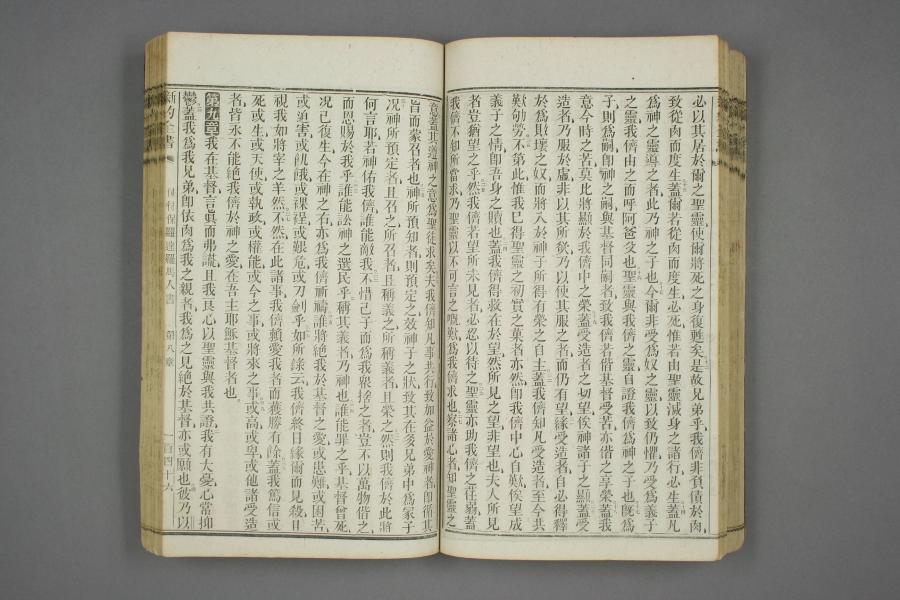 必以其居於爾之聖靈使爾將死之身復甦矣是故兄弟乎我儕非負債於肉
致從肉而度生蓋爾若從肉而度生必死惟若由聖靈滅身之諸行必生蓋凡
為神之靈導之者此乃神之子也今爾非受為奴之靈以致仍懼乃受為義子
之靈我儕由之而呼阿爸父也聖靈與我儕之靈自證我儕為神之子也既為
子則為嗣即神之嗣與基督同嗣者致我儕若偕基督受苦亦偕之享榮蓋我
意今時之苦莫比將顯於我儕中之榮蓋受造者之切望俟神諸子之顯蓋受
造者乃服於虛非以其所欲乃以使其服之者而仍有望緣受造者自必得釋
於為敗壞之奴而將入於神子所得有榮之自主蓋我儕知凡受造者至今共
歎劬勞不第此惟我已得聖靈之初實之菓者亦然即我儕中心自歎俟望成
義子之情即吾身之贖也蓋我儕得救在於望然所見之望非望也夫人所見
者豈猶望之乎然我儕若望所未見者必忍以待之聖靈亦助我儕之荏弱蓋
我儕不知所當求乃聖靈以不可言之嘅歎為我儕求也察諸心者知聖靈之
意蓋其遵神之意為聖徒求矣夫我儕知凡事共行致如益於愛神者即循其
旨而蒙召者也神所預知者則預定之效神子之狀致其在多兄弟中為冢子
況神所預定者且召之所召者且稱義之所稱義者且榮之然則我儕於此將
何言耶若神佑我儕誰能敵我不惜己子而為我眾捨之者豈不以萬物偕之
而恩賜於我乎誰能訟神之選民乎稱其義者乃神也誰能罪之乎基督曾死
況已復生今在神之右亦為我儕祈禱誰將絕我於基督之愛或患難或困苦
或迫害或飢餓或裸裎或艱危或刀劍乎如所錄云我儕終日緣爾而見殺
視我如將宰之羊然不然在此諸事我儕賴愛我者而獲勝有餘蓋我篤信或
死或生或天使或執政或權能或今之事或將來之事或高或卑或他諸受造
者皆永不能絕我儕於神之愛在吾主耶穌基督者也
第九章我在基督言真而弗謊且我良心以聖靈與我共證我有大憂心常抑
鬱蓋我為我兄弟即依肉為我之親者我為之見絕於基督亦或願也彼乃以
新約全書 使徒保羅達羅馬人書 第八章 一百四十六